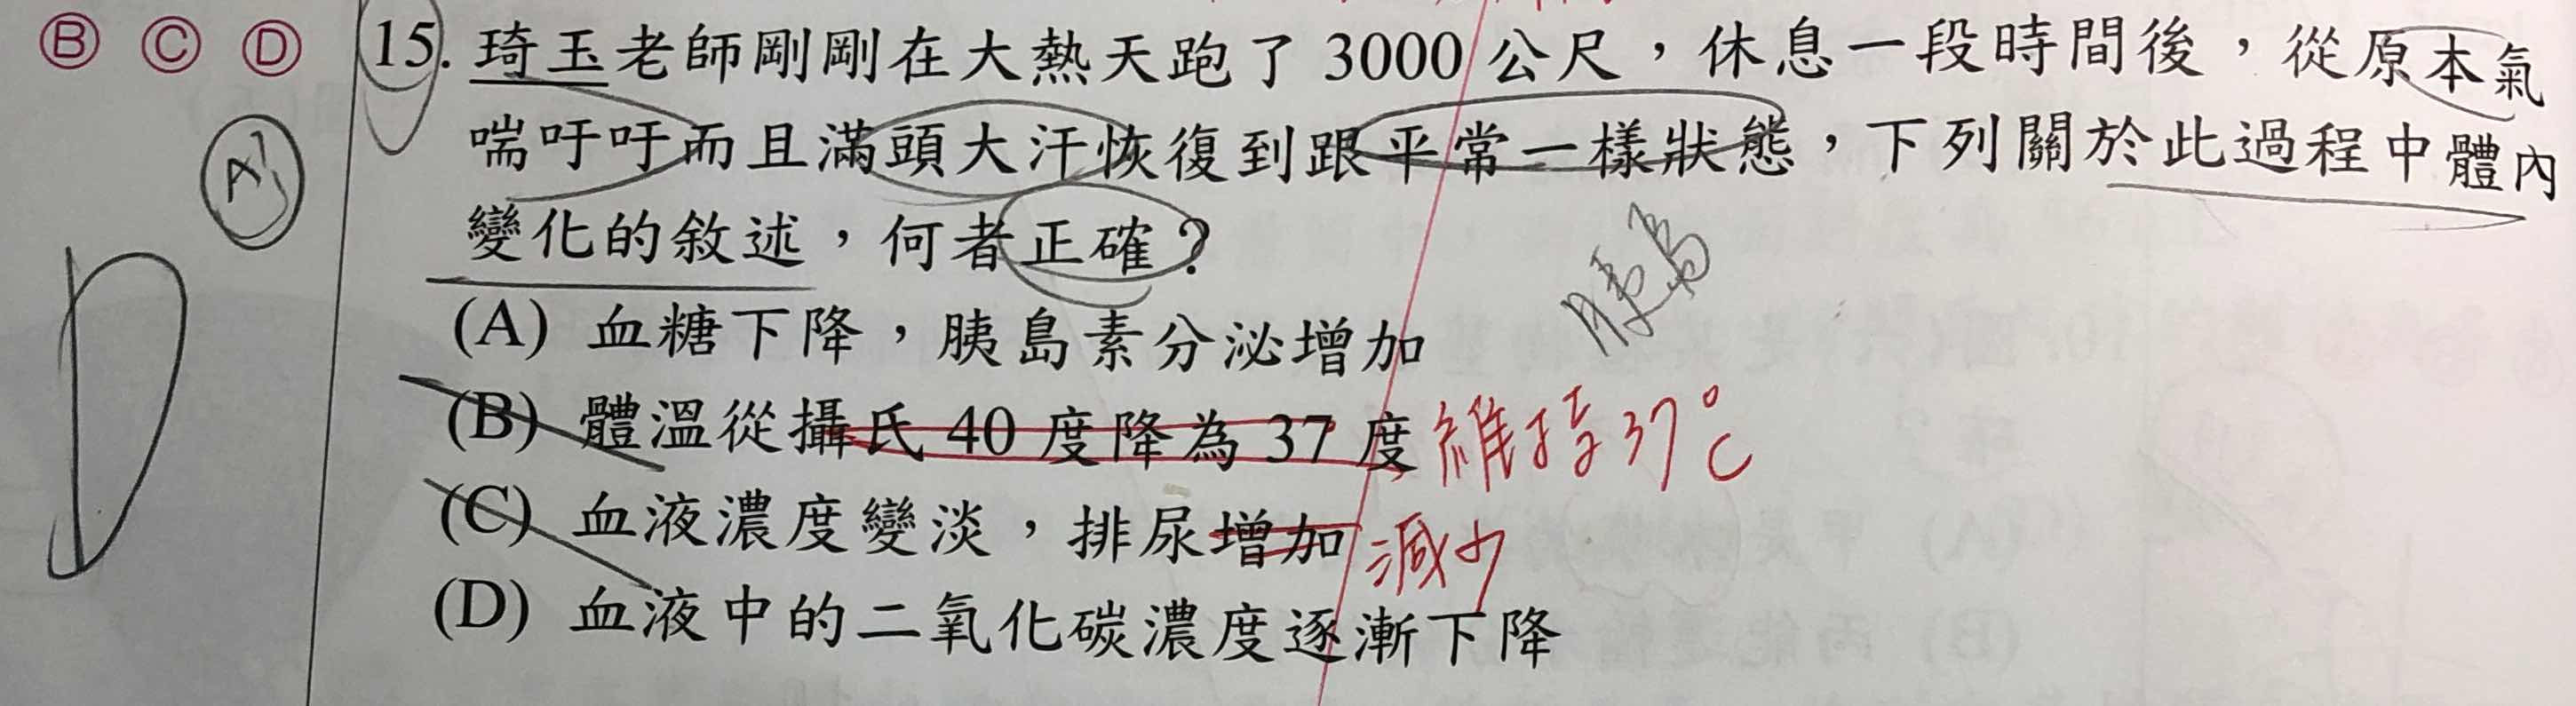 Ⓑ Ⓒ Ⓓ 15. 琦玉老師剛剛在大熱天跑了 3000 公尺，休息一段時間後，從原本氣
喘吁吁而且滿頭大汗恢復到跟平常一樣狀態，下列關於此過程中體內
變化的敘述，何者正確？
A
D
胰島
(A) 血糖下降，胰島素分泌增加
(B) 體溫從攝氏 40 度降為 37 度 維持37°C
(C) 血液濃度變淡，排尿增加 減少
(D) 血液中的二氧化碳濃度逐漸下降